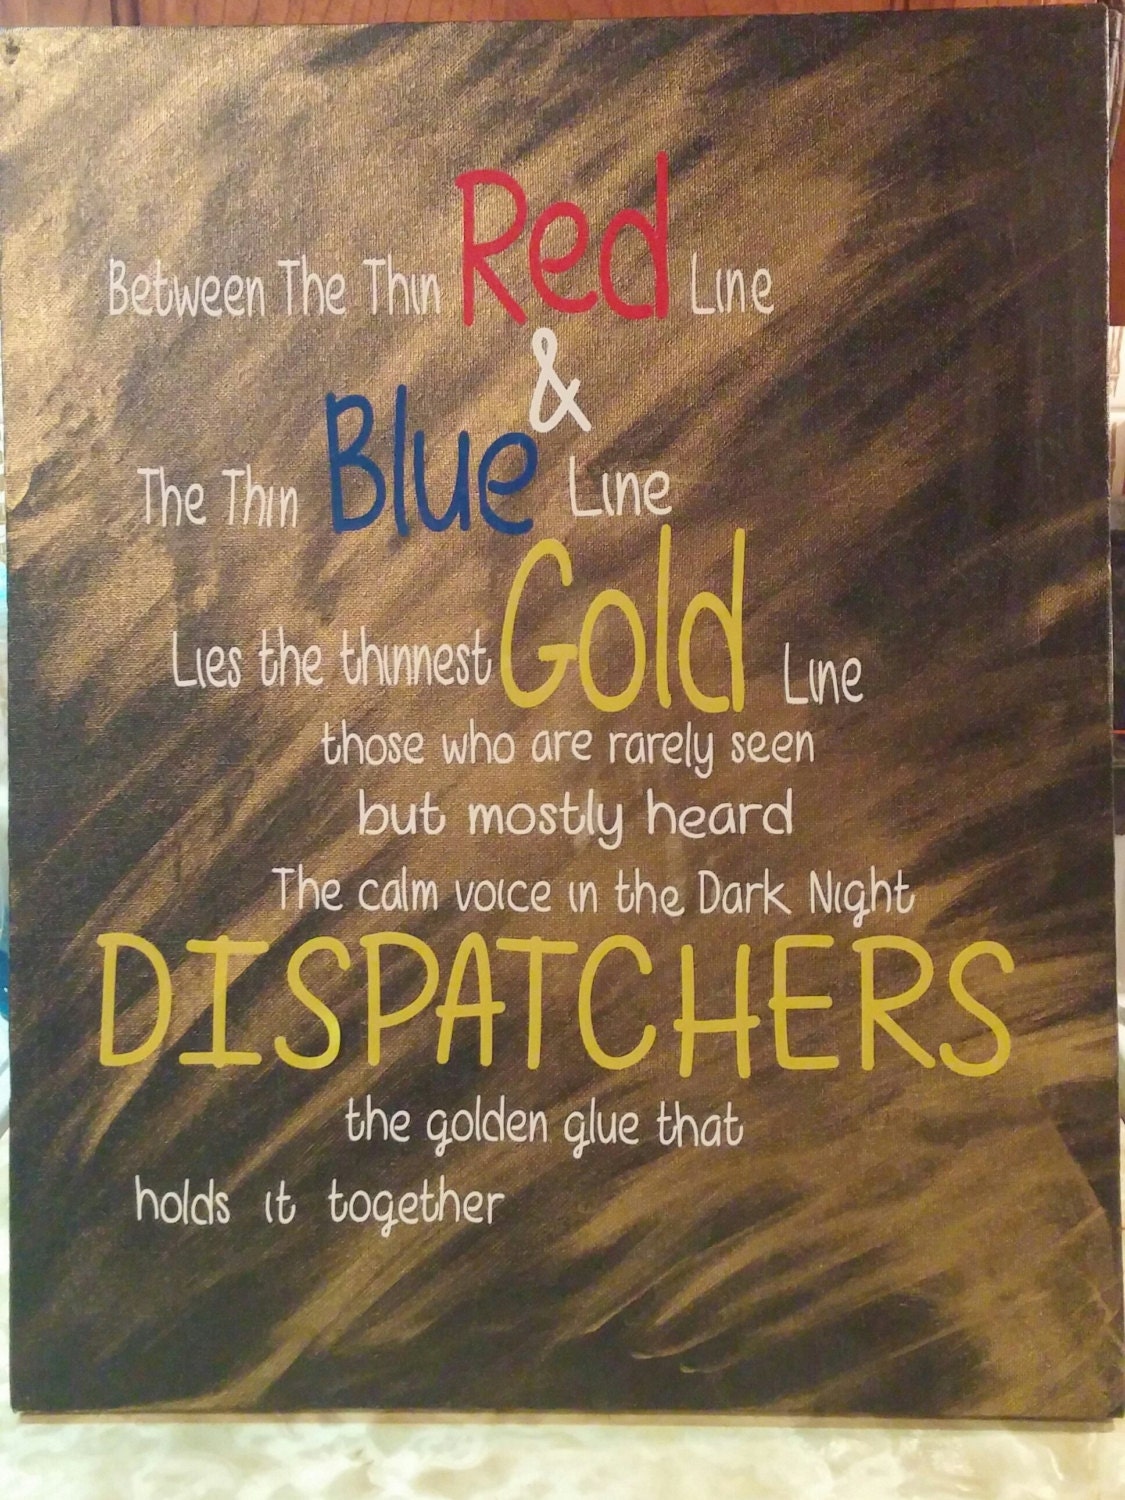 Between The Thin Red Line
&
The Thin Blue Line
Lies the thinnest Gold Line
those who are rarely seen
but mostly heard
The calm voice in the Dark Night
DISPATCHERS
the golden glue that
holds it together